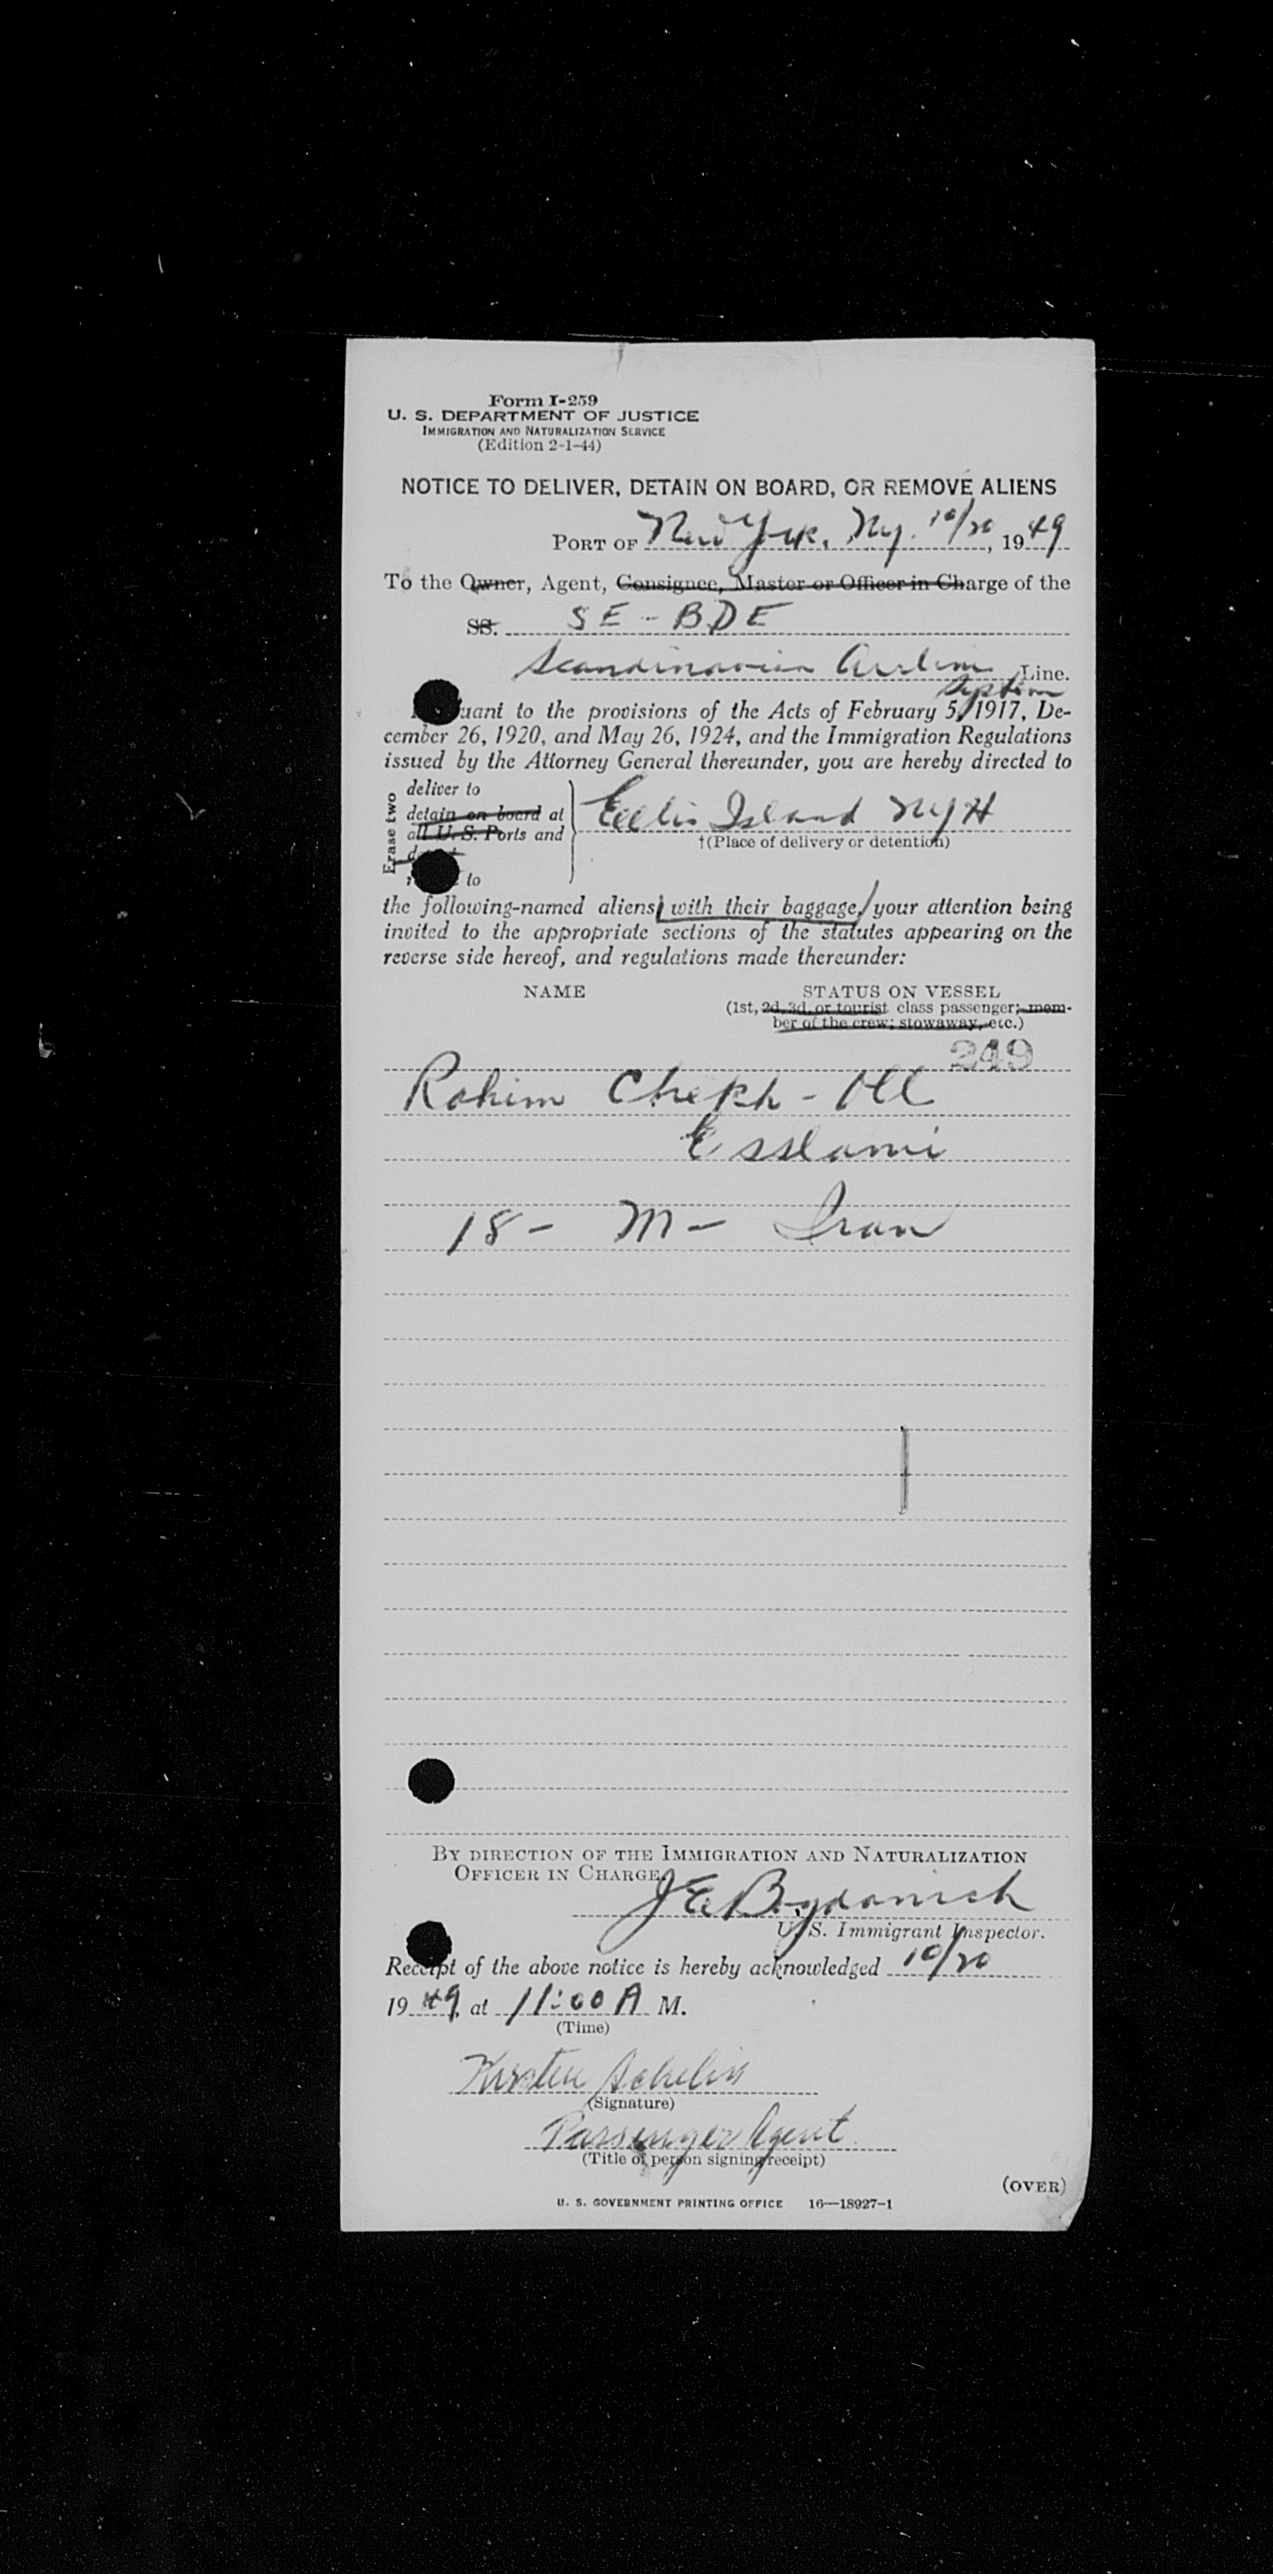 Form I-259
U. S. DEPARTMENT OF JUSTICE
IMMIGRATION AND NATURALIZATION SERVICE
(Edition 2-1-44)
NOTICE TO DELIVER, DETAIN ON BOARD, OR REMOVE ALIENS
PORT OF New York, Ny. 10/20, 1949
To the Owner, Agent, Consignee, Master or Officer in Charge of the
SS. SE-BDE
Scandinavian Line.
uant to the provisions of the Acts of February 5, 1917, De-
cember 26, 1920, and May 26, 1924, and the Immigration Regulations
issued by the Attorney General thereunder, you are hereby directed to
Erase two
deliver to
detain on board at
all U. S. Ports and
to
Ellis Island NYH
†(Place of delivery or detention)
the following-named aliens, with their baggage, your attention being
invited to the appropriate sections of the statutes appearing on the
reverse side hereof, and regulations made thereunder:
NAME STATUS ON VESSEL
(1st, 2d, 3d, or tourist class passenger; mem-
ber of the crew; stowaway, etc.)
249
Rahim Cheikh-Ol
Esslami
18- M- Iran
BY DIRECTION OF THE IMMIGRATION AND NATURALIZATION
OFFICER IN CHARGE.
J E Bogdanich
U. S. Immigrant Inspector.
Receipt of the above notice is hereby acknowledged 10/20
1949, at 11:00 A M.
(Time)
Kirsten
(Signature)
Passenger Agent
(Title of person signing receipt)
(OVER)
U. S. GOVERNMENT PRINTING OFFICE 16—18927-1